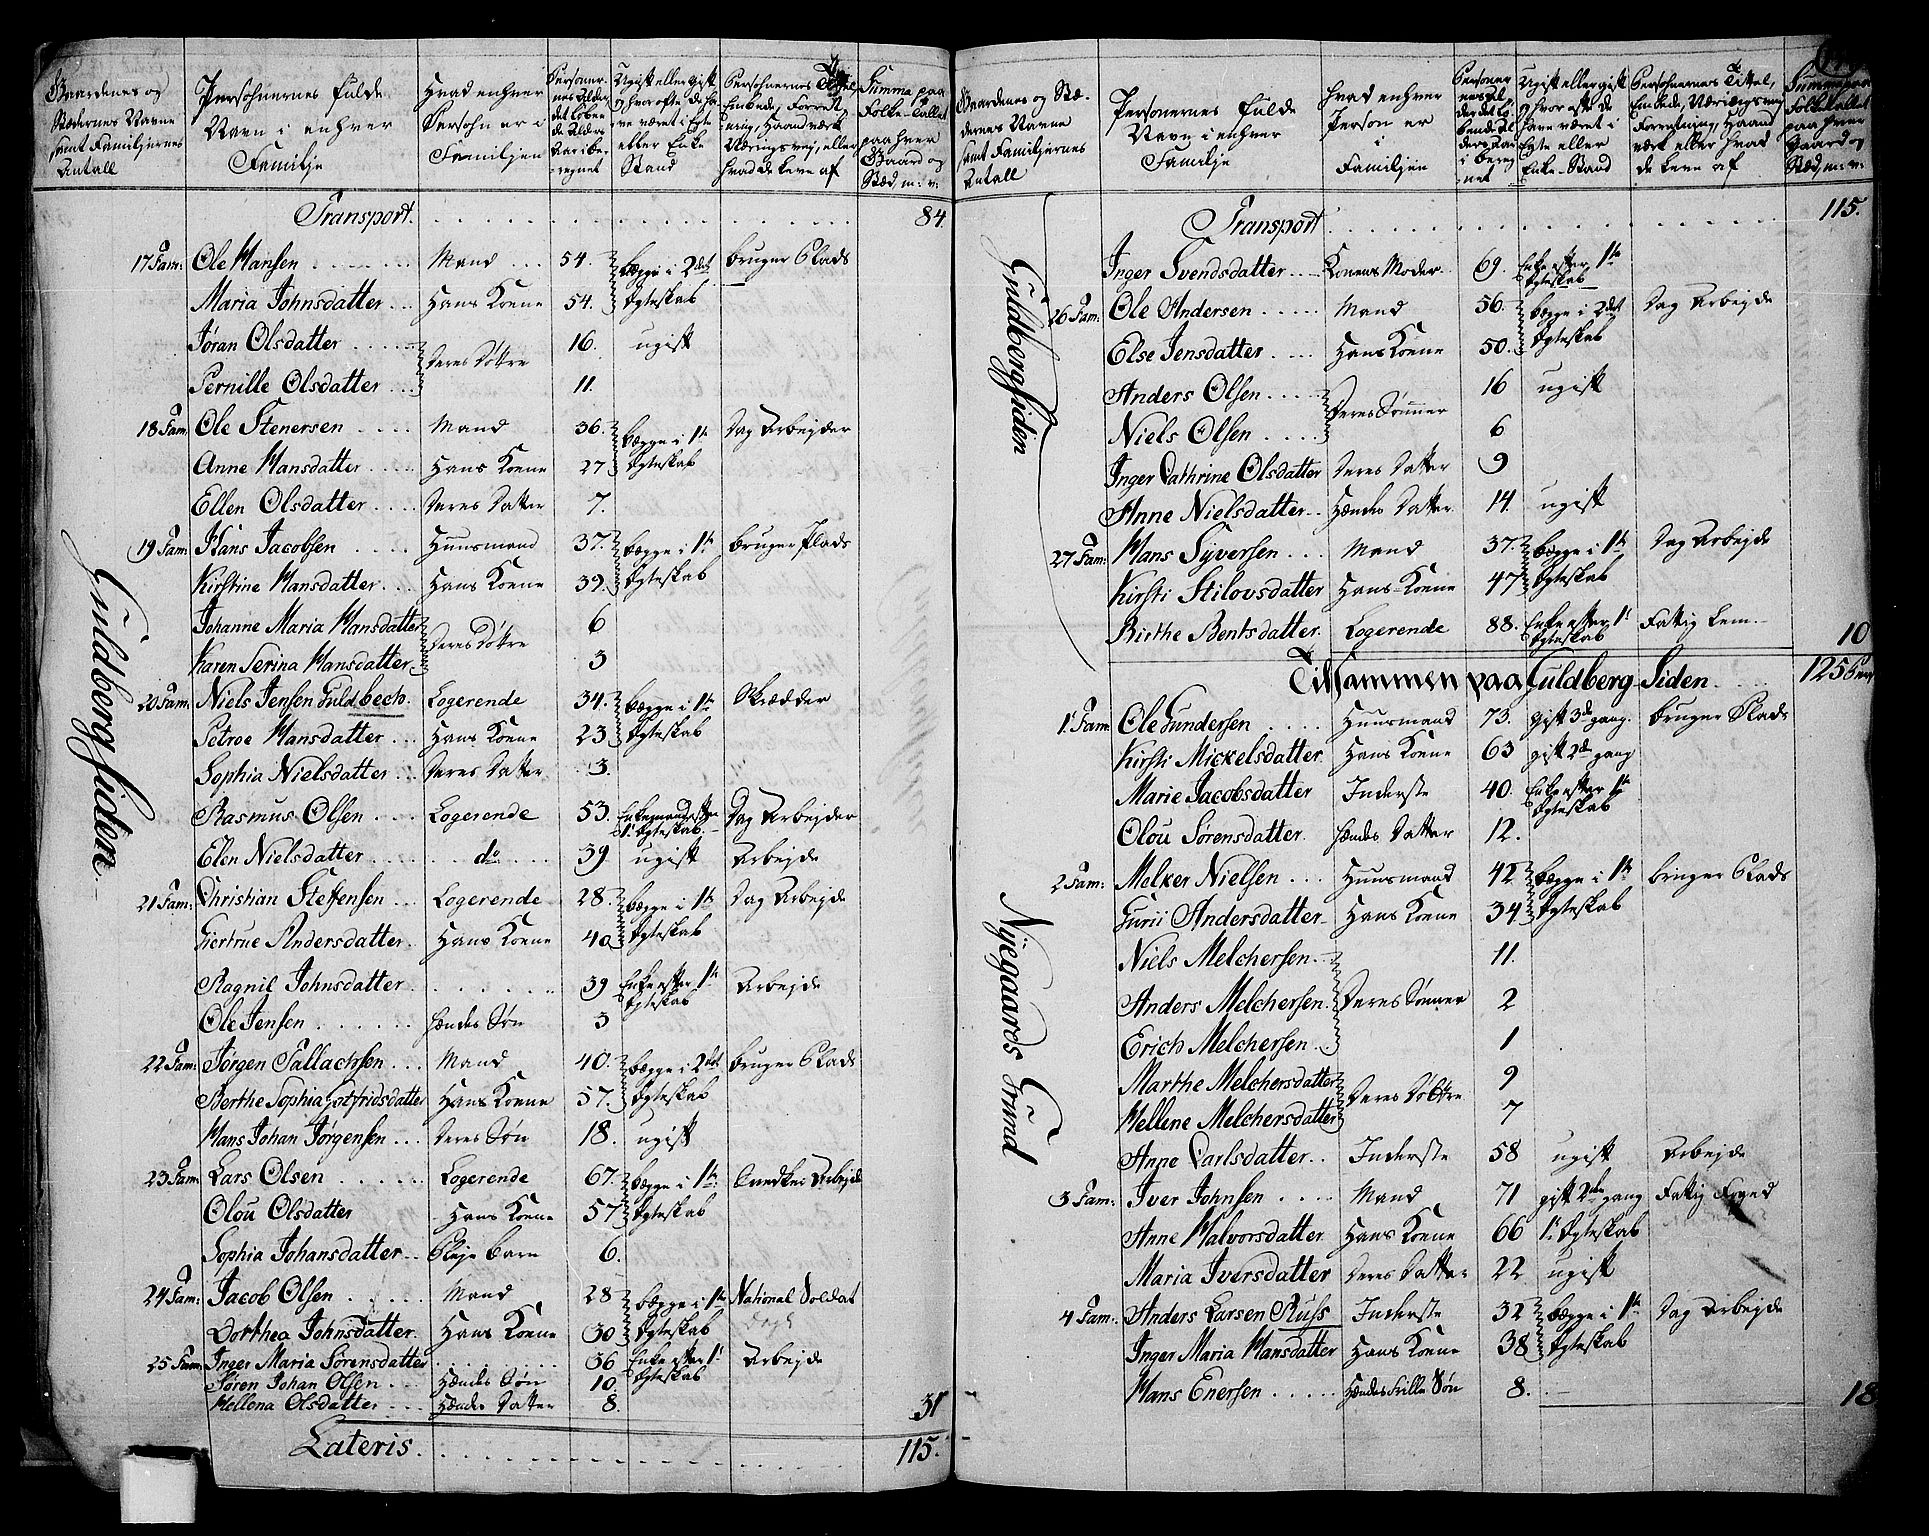 Gaardenes og Stædernes Navne samt Familjernes Antall | Persohnernes fulde Navn i enhver Familje | Hvad enhver Persohn er i Familjen | Personernes Alder det løbende Alders Aar iberegnet | Ugift eller gift, og hvor ofte de have været i Egte eller Enke Stand | Persohnernes Tittel, Embede, Forretning, Haandværk Næringsvej, eller hvad de leve af | Summa paa Folke-Tallet paa hver Gaard og Stæd, m: v:
Guldbergsiden
Transport. 84
17 Fam: Ole Hansen Mand 54. begge i 2det Egteskab bruger Plads
Maria Johnsdatter Hans Koene 54.
Jøran Olsdatter Deres Døttre 16. ugift
Pernille Olsdatter 11.
18 Fam: Ole Stenersen Mand 36. begge i 1te Egteskab Dag Arbejder
Anne Hansdatter Hans Koene 27
Ellen Olsdatter Deres Datter 7.
19 Fam: Hans Jacobsen Huusmand 37. begge i 1te Egteskab bruger Plads
Kirstine Hansdatter Hans Koene 39.
Johanne Maria Hansdatter Deres Døttre 6
Karen Serina Hansdatter 3
20 Fam: Niels Jensen Guldbech. Logerende 34. begge i 1te Egteskab Skrædder
Petroe Hansdatter Hans Koene 23
Sophia Nielsdatter Deres Datter 3.
Rasmus Olsen Logerende 53. Enkemand efter 1te Egteskab. Dag Arbejder
Elen Nielsdatter do 39 ugift Arbejde
21 Fam: Christian Steffensen Logerende 28. begge i 1te Egteskab Dag Arbejde
Giertrue Andersdatter Hans Koene 40
Ragnil Johnsdatter 39 Enke efter 1te Egteskab Arbejde
Ole Jensen Hendes Søn 3
22 Fam: Jørgen Pallachsen Mand 40. begge i 2det Egteskab bruger Plads
Berthe Sophia Gotfridsdatter Hans Koene 57.
Hans Johan Jørgensen Deres Søn 18. ugift
23 Fam: Lars Olsen Logerende 67. begge i 1te Egteskab Snedker Arbejde
Olou Olsdatter Hans Koene 57
Sophia Johansdatter Pleje barn 6.
24 Fam: Jacob Olsen Mand 28 begge i 1te Egteskab National Soldat
Dorthea Johnsdatter Hans Koene 30
25 Fam: Inger Maria Sørensdatter 36 Enke efter 1te Egteskab Arbejde
Søren Johan Olsen Hendes Søn 10.
Hellena Olsdatter Hendes Datter 8. 31
Lateris. 115.
Gaardenes og Stædernes Navne samt Familjernes Antall | Personernes fulde Navn i enhver Familje | Hvad enhver Person er i Familjen | Personernes Alder det løbende Alders Aar i beregnet | Ugift eller gift og hvor ofte de have været i Egte eller Enke-Stand | Persohnernes Tittel, Embede, Næringsvej Forretning, Haandværk eller hvad de leve af | Summen paa Folketallet paa hver Gaard og Stæd, m: v:
Guldbergsiden
Transport 115.
Inger Svendsdatter Konens Moder 69. Enke efter 1te Egteskab
26 Fam: Ole Andersen Mand 56. begge i 2det Egteskab Dag Arbejde
Else Jensdatter Hans Koene 50.
Anders Olsen Deres Sønner 16 ugift
Niels Olsen 6
Inger Cathrine Olsdatter Deres Datter 9
Anne Nielsdatter Hendes Datter 14. ugift
27 Fam: Hans Syversen Mand 37. begge i 1te Egteskab Dag Arbejde
Kirsti Stilovsdatter Hans Koene 47
Birthe Bentsdatter. Logerende 88. Enke efter 1te Egteskab Fattig Lem. 10
Tilsammen paa Guldberg-Siden 125
Nyegaards Grund
1. Fam: Ole Gundersen Huusmand 73. gift 3de gang. bruger Plads
Kirsti Mickelsdatter Hans Koene 63 gift 2den gang
Marie Jacobsdatter Inderste 40. Enke efter 1te Egteskab
Olou Sørensdatter. Hendes Datter 12.
2 Fam: Melker Nielsen Huusmand 42 begge i 1te Egteskab bruger Plads
Gurii Andersdatter Hans Koene 34
Niels Melchersen Deres Sønner 11.
Anders Melchersen 2
Erich Melchersen 1
Marthe Melchersdatter Deres Døttre 9
Hellene Melchersdatter 7
Anne Carlsdatter Inderste 58 ugift Arbejde
3 Fam: Iver Johnsen Mand 71 gift 2den gang Fattig
Anne Halvorsdatter Hans Koene 66 1te Egteskab
Maria Iversdatter Deres Datter 22 ugift
4 Fam: Anders Larsen Russ Inderste 32 begge i 1te Egteskab Dag Arbejde
Inger Maria Hansdatter Hans Koene 38
Hans Enersen Hendes Frille Søn 8. 18